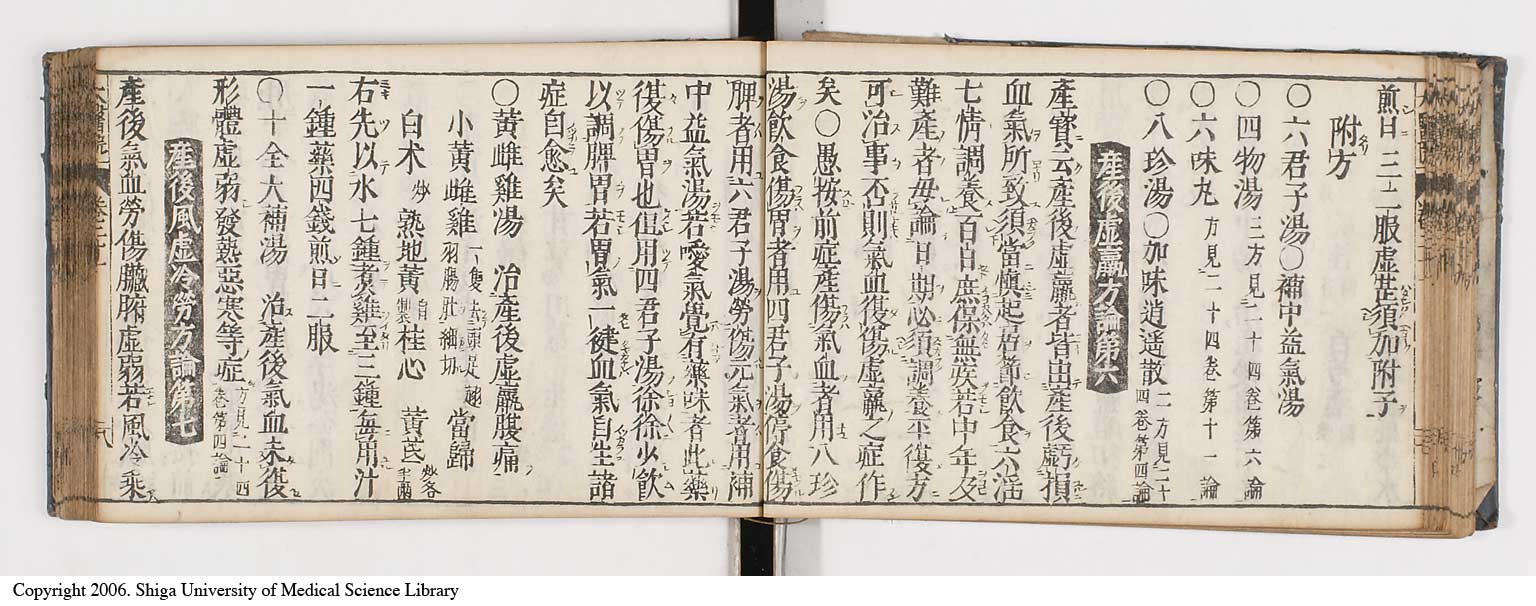 煎日三二服虛甚須加附子
附方
〇六君子湯〇補中益氣湯
〇四物湯三方見二十四卷第六論
〇六味丸方見二十四卷第十一論
〇八珍湯〇加味逍遥散二方見二十四卷第四論
產後虛羸方論第六
產寶云產後虛羸者皆由產後虧損
血氣所致須當愼起居節飮食六淫
七情調養百日庶保無疾若中年及
難產者毋論日期必須調養平復方
可治事否則氣血復傷虛羸之症作
矣〇愚按前症產傷氣血者用八珍
湯飮食傷胃者用四君子湯停食傷
脾者用六君子湯勞傷元氣者用補
中益氣湯若噯氣覺有藥味者此藥
復傷胃也但用四君子湯徐徐少飮
以調脾胃若胃氣一健血氣自生諸
症自愈矣
〇黃雌雞湯 治產後虛羸腹痛
小黃雌雞一隻去頭足翅羽腸肚細切 當歸
白术炒 熟地黃 桂心 黃芪炒各半兩
右先以水七鍾煮雞至三鍾每用汁
一鍾藥四錢煎日二服
〇十全大補湯 治產後氣血未復
形體虛弱發熱惡寒等症方見二十四卷第四論
產後風虛冷勞方論第七
產後氣血勞傷臟腑虛弱若風冷乘
Copyright 2006. Shiga University of Medical Science Library